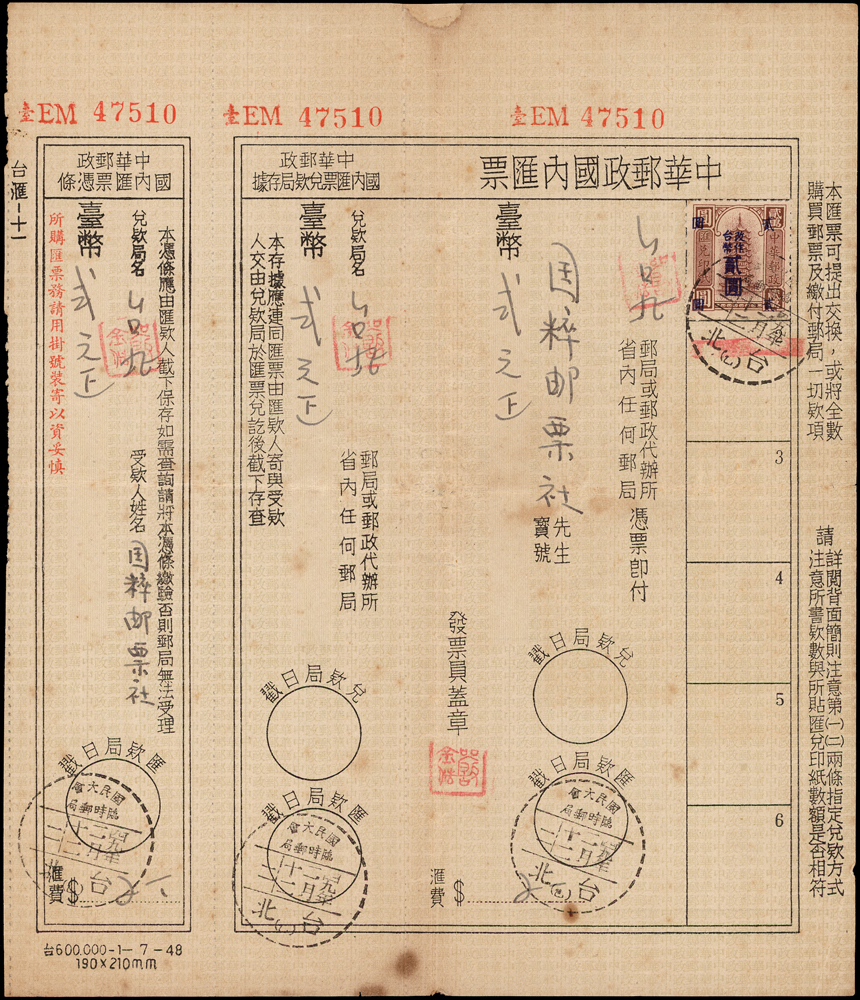 臺EM 47510
臺EM 47510
臺EM 47510
本匯票可提出交換，或將全數
購買郵票及繳付郵局一切欵項
請
詳閱背面簡則注意第(一)(二)兩條指定兌欵方式
注意所書欵數與所貼匯兌印紙數額是否相符
中華郵政國內匯票
改作
台幣
貳圓
3
4
5
6
郵局或郵政代辦所
省內任何郵局
憑票卽付
国粹邮票社
先生
寶號
臺幣
弍元正
發票員蓋章
兌欵局日戳
匯欵局日戳
國民大會
臨時郵局
台北
匯費 $
中華郵政
國內匯票兌欵局存據
兌欵局名
郵局或郵政代辦所
省內任何郵局
臺幣
弍元正
本存據應連同匯票由匯欵人寄與受欵
人交由兌欵局於匯票兌訖後截下存查
兌欵局日戳
匯欵局日戳
國民大會
臨時郵局
台北
中華郵政
國內匯票憑條
本憑條應由匯欵人截下保存如需查詢請將本憑條繳驗否則郵局無法受理
兌欵局名
受欵人姓名
国粹邮票社
臺幣
弍元正
所購匯票務請用掛號裝寄以資妥慎
匯欵局日戳
國民大會
臨時郵局
台北
匯費 $
台匯-十一
台600.000-1-7-48
190×210m.m